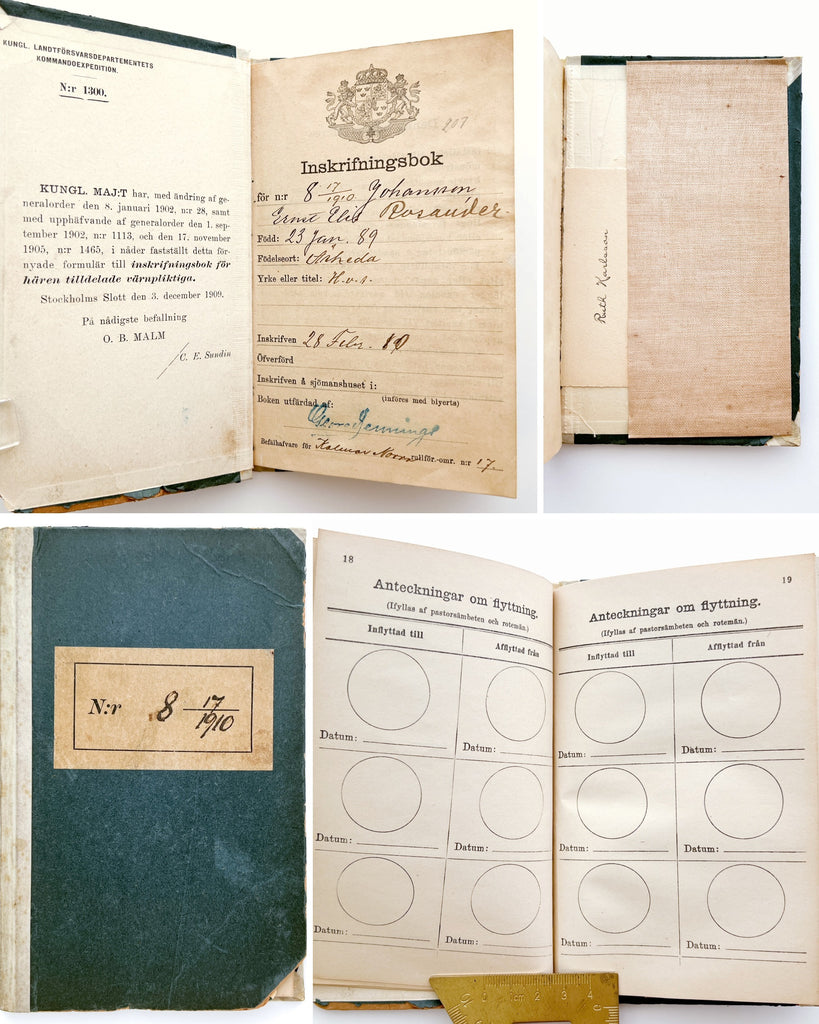 KUNGL. LANDTFÖRSVARSDEPARTEMENTETS
KOMMANDOEXPEDITION.
N:r 1300.
KUNGL. MAJ:T har, med ändring af ge-
neralorder den 8. januari 1902, n:r 28, samt
med upphäfvande af generalorder den 1. sep-
tember 1902, n:r 1113, och den 17. november
1905, n:r 1465, i nåder fastställt detta för-
nyade formulär till inskrifningsbok för
hären tilldelade värnpliktiga.
Stockholms Slott den 3. december 1909.
På nådigste befallning
O. B. MALM
/C. E. Sundin
207
Inskrifningsbok
för n:r 8 17/1910 Johansson
Ernst Elis Rosander
Född: 23 Jan. 89
Födelseort: Åsheda
Yrke eller titel: H.v.s.
Inskrifven 28 Febr. 10
Öfverförd
Inskrifven å sjömanshuset i:
(införes med blyerts)
Boken utfärdad af:
Georg Jennings
Befälhafvare för Kalmar Norra rullför.-omr. n:r 17
Ruth Karlsson
N:r 8 17/1910
18
Anteckningar om flyttning.
(Ifyllas af pastorsämbeten och rotemän.)
Inflyttad till
Afflyttad från
Datum:
Datum:
Datum:
Datum:
Datum:
Datum:
19
Anteckningar om flyttning.
(Ifyllas af pastorsämbeten och rotemän.)
Inflyttad till
Afflyttad från
Datum:
Datum:
Datum:
Datum:
Datum:
Datum:
0 cm 2 3 4